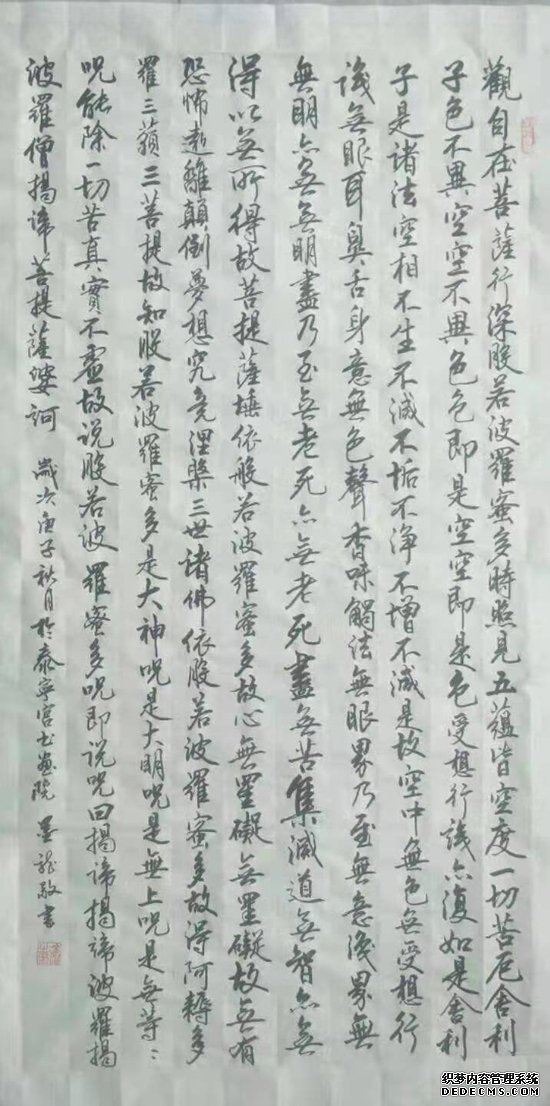 觀自在菩薩行深般若波羅蜜多時照見五蘊皆空度一切苦厄舍利
子色不異空空不異色色即是空空即是色受想行識亦復如是舍利
子是諸法空相不生不滅不垢不淨不增不減是故空中無色無受想行
識無眼耳鼻舌身意無色聲香味觸法無眼界乃至無意識界無
無明亦無無明盡乃至無老死亦無老死盡無苦集滅道無智亦無
得以無所得故菩提薩埵依般若波羅蜜多故心無罣礙無罣礙故無有
恐怖遠離顛倒夢想究竟涅槃三世諸佛依般若波羅蜜多故得阿耨多
羅三藐三菩提故知般若波羅蜜多是大神呪是大明呪是無上呪是無等〻
呪能除一切苦真實不虛故說般若波羅蜜多呪即說呪曰揭諦揭諦波羅揭
波羅僧揭諦菩提薩婆訶 歲次庚子秋月於泰寧宮書畫院 墨龍敬書
织梦内容管理系统
DEDECMS.COM